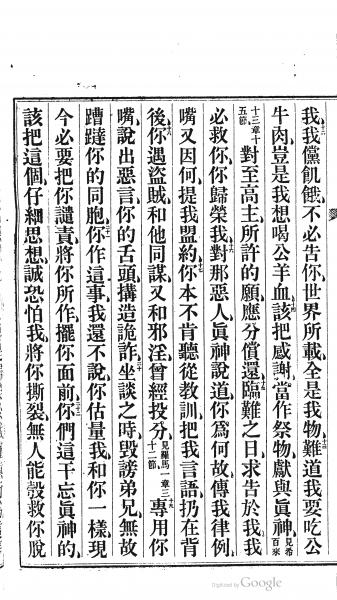 我我儻飢餓不必告你世界所載全是我物難道我要吃公
牛肉豈是我想喝公羊血該把感謝當作祭物獻與眞神見希百來
十三章十五節對至高主所許的願應分償還臨難之日求告於我我
必救你你歸榮我對那惡人眞神說道你爲何故傳我律例
嘴又因何提我盟約你本不肯聽從教訓把我言語扔在背
後你遇盜賊和他同謀又和邪淫曾經投分見羅馬一章三十二節專用你
嘴說出惡言你的舌頭搆造詭詐坐談之時毀謗弟兄無故
蹧躂你的同胞你作這事我還不說你估量我和你一樣現
今必要把你譴責將你所作擺你面前你們這干忘眞神的
該把這個仔細思想誠恐怕我將你撕裂無人能彀救你脫
Digitized by Google